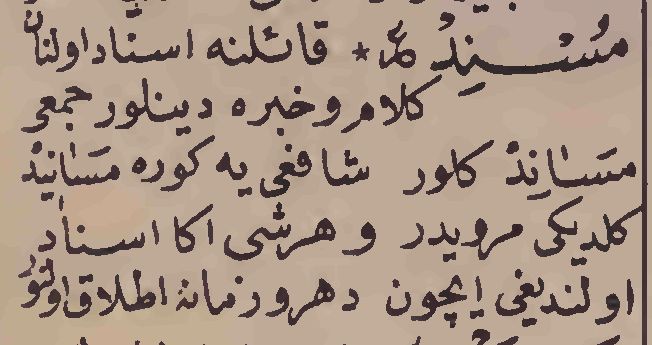 مُسْنَدْ * قائلنه اسناد اولنان
كلام وخبره دينلور جمعى
مسَانِدْ كلور شافعى يه كوره مسَانيدْ
كلديكى مرويدر وهرشى اكا اسناد
اولنديغى ايچون دهر و زمانه اطلاق اولنور